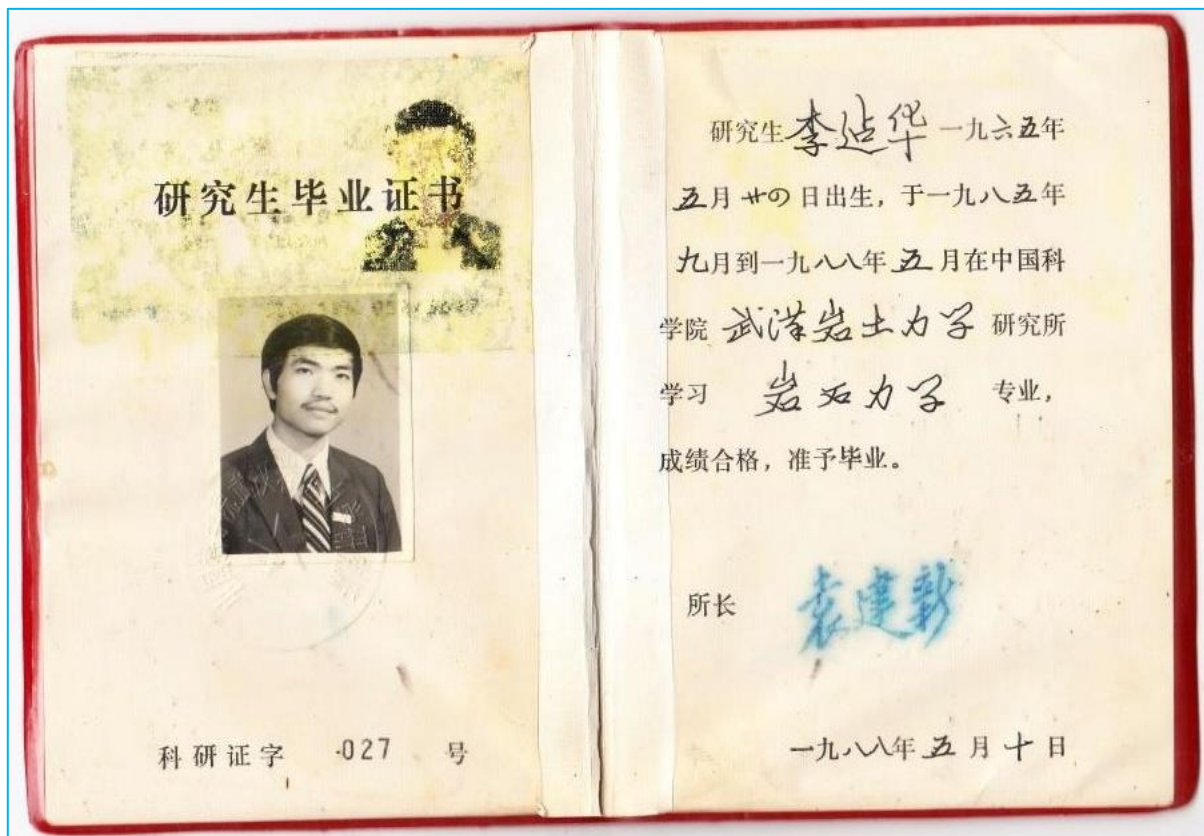 研究生毕业证书
科研证字 027 号
研究生 李 华 一九六五年
五月廿四日出生，于一九八五年
九月到一九八八年 五 月在中国科
学院 武汉岩土力学 研究所
学习 岩石力学 专业，
成绩合格，准予毕业。
所长 袁建新
一九八八年 五 月 十 日